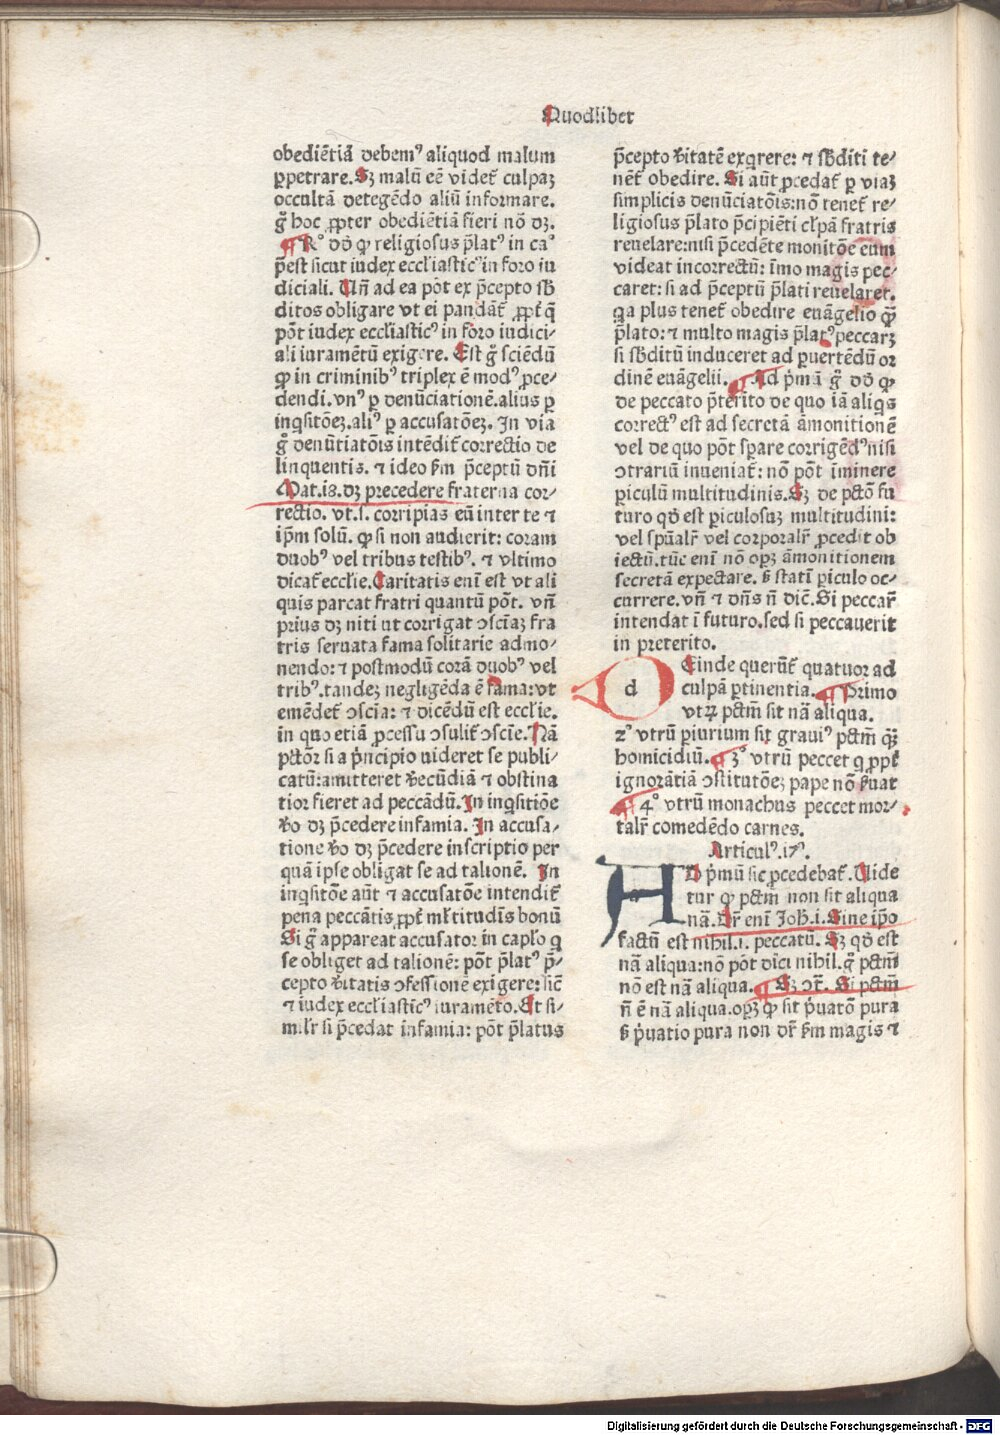 Quodlibet
obediẽtiã debemꝰ aliquod malum
ꝑpetrare. Sꝫ malũ eẽ videt̃ culpaꝫ
occultã detegẽdo aliũ informare.
g̃ hoc ꝓpter obediẽtiã fieri nõ dꝫ.
¶ Rꝰ dõ ꝙ religiosus p̃latꝰ in caꝰ
p̃est sicut iudex eccl̃iasticꝰ in foro iu
diciali. Vñ ad ea põt ex p̃cepto sb̃
ditos obligare vt ei pandãt̃ ꝓpt̃ q̃
põt iudex eccl̃iasticꝰ in foro iudici⸗
ali iuramẽtũ exigere. Est g̃ sciẽdũ
ꝙ in criminibꝰ triplex ẽ modꝰ ꝓce⸗
dendi. vnꝰ ꝑ denũciationẽ. alius ꝑ
inq̃sitõeꝫ. aliꝰ ꝑ accusatõeꝫ. In via
g̃ denũtiatõis intẽdit̃ correctio de
linquentis. ⁊ ideo ẜm p̃ceptũ dñi
Mat. i8. dꝫ precedere fraterna cor⸗
rectio. vt. s. corripias eũ inter te ⁊
ip̃m solũ. ꝙ si non audierit: coram
duobꝰ vel tribus testibꝰ. ⁊ vltimo
dicat̃ eccl̃ie. Caritatis enĩ est vt ali
quis parcat fratri quantũ põt. vñ
prius dꝫ niti ut corrigat ↄsciãꝫ fra
tris seruata fama solitarie admo⸗
nendo: ⁊ postmodũ corã duobꝰ vel
tribꝰ. tandeꝫ negligẽda ẽ fama: vt
emẽdet̃ ↄscĩa: ⁊ dicẽdũ est eccl̃ie.
in quo etiã ꝓcessu ↄsulit̃ ↄscĩe. Nã
pctõr si a p̃ncipio uideret se publi⸗
catũ: amitteret ṽecũdiã ⁊ obstina
tior fieret ad peccãdũ. In inq̃sitiõe
ṽo dꝫ p̃cedere infamia. In accusa⸗
tione ṽo dꝫ p̃cedere inscriptio per
quã ipse obligat se ad talionẽ. In
inq̃sitõe aũt ⁊ accusatõe intendit̃
pena peccãtis ꝓpt̃ ml̃titudĩs bonũ
Si g̃ appareat accusator in capl̃o q
se obliget ad talionẽ: põt p̃latꝰ p̃⸗
cepto ṽitatis ↄfessionẽ exigere: sic̃
⁊ iudex eccl̃iasticꝰ iuramẽto. Et si⸗
mil̃r si p̃cedat infamia: põt p̃latus
p̃cepto ṽitatẽ exq̃rere: ⁊ sb̃diti te⸗
nẽt̃ obedire. Si aũt ꝓcedat̃ ꝑ viaꝫ
simplicis denũciatõis: nõ tenet̃ re⸗
ligiosus p̃lato p̃cipiẽti cl̃pã fratris
reuelare: nisi p̃cedẽte monitõe eum
videat incorrectũ: ĩmo magis pec⸗
caret: si ad p̃ceptũ p̃lati reuelaret.
q̃a plus tenet̃ obedire euãgelio ꝙ̃
p̃lato: ⁊ multo magis p̃latꝰ peccarꝫ
si sb̃ditũ induceret ad ꝑuertẽdũ or
dinẽ euãgelii. ¶ Ad p̃mã g̃ dõ ꝙ
de peccato p̃terito de quo iã aliq̃s
correctꝰ est ad secretã ãmonitionẽ
vel de quo põt sꝑare corrigẽdꝰ nisi
ↄtrariũ inueniat̃: nõ põt ĩminere
ꝑiculũ multitudinis. Sꝫ de pctõ fu
turo qõ est ꝑiculosuꝫ multitudini:
vel spũalr̃ vel corporalr̃ ꝓcedit ob
iectũ. tũc enĩ nõ oꝑꝫ ãmonitionem
secretã expectare. s̃ statĩ ꝑiculo oc⸗
currere. vñ ⁊ dñs ñ dic̃. Si peccar̃
intendat ĩ futuro. sed si peccauerit
in preterito.
d Einde querũt̃ quatuor ad
culpã ꝑtinentia. ¶ Primo
vtꝝ pctm̃ sit nã aliqua.
2ꝰ vtrũ ꝑiurium sit grauiꝰ pctm̃ qꝫ̃
homicidiũ. ¶ 3ꝰ vtrũ peccet q ꝓpt̃
ignorãtiã ↄstitutõeꝫ pape nõ ẜuat
¶ 4ꝰ vtrũ monachus peccet mor⸗
talr̃ comedẽdo carnes.
Articulꝰ. i7ꝰ.
AD p̃mũ sic ꝓcedebat̃. Uide
tur ꝙ pctm̃ non sit aliqua
nã. Dr̃ enĩ Joh̃. i. Sine ip̃o
factũ est nihil. i. peccatũ. Sꝫ qõ est
nã aliqua: nõ põt dici nihil. g̃ pctm̃
nõ est nã aliqua. ¶ Sꝫ ↄt̃. Si pctm̃
ñ ẽ nã aliqua. oꝑꝫ ꝙ sit p̃uatõ pura
s̃ p̃uatio pura non dr̃ ẜm magis ⁊
Digitalisierung gefördert durch die Deutsche Forschungsgemeinschaft - DFG